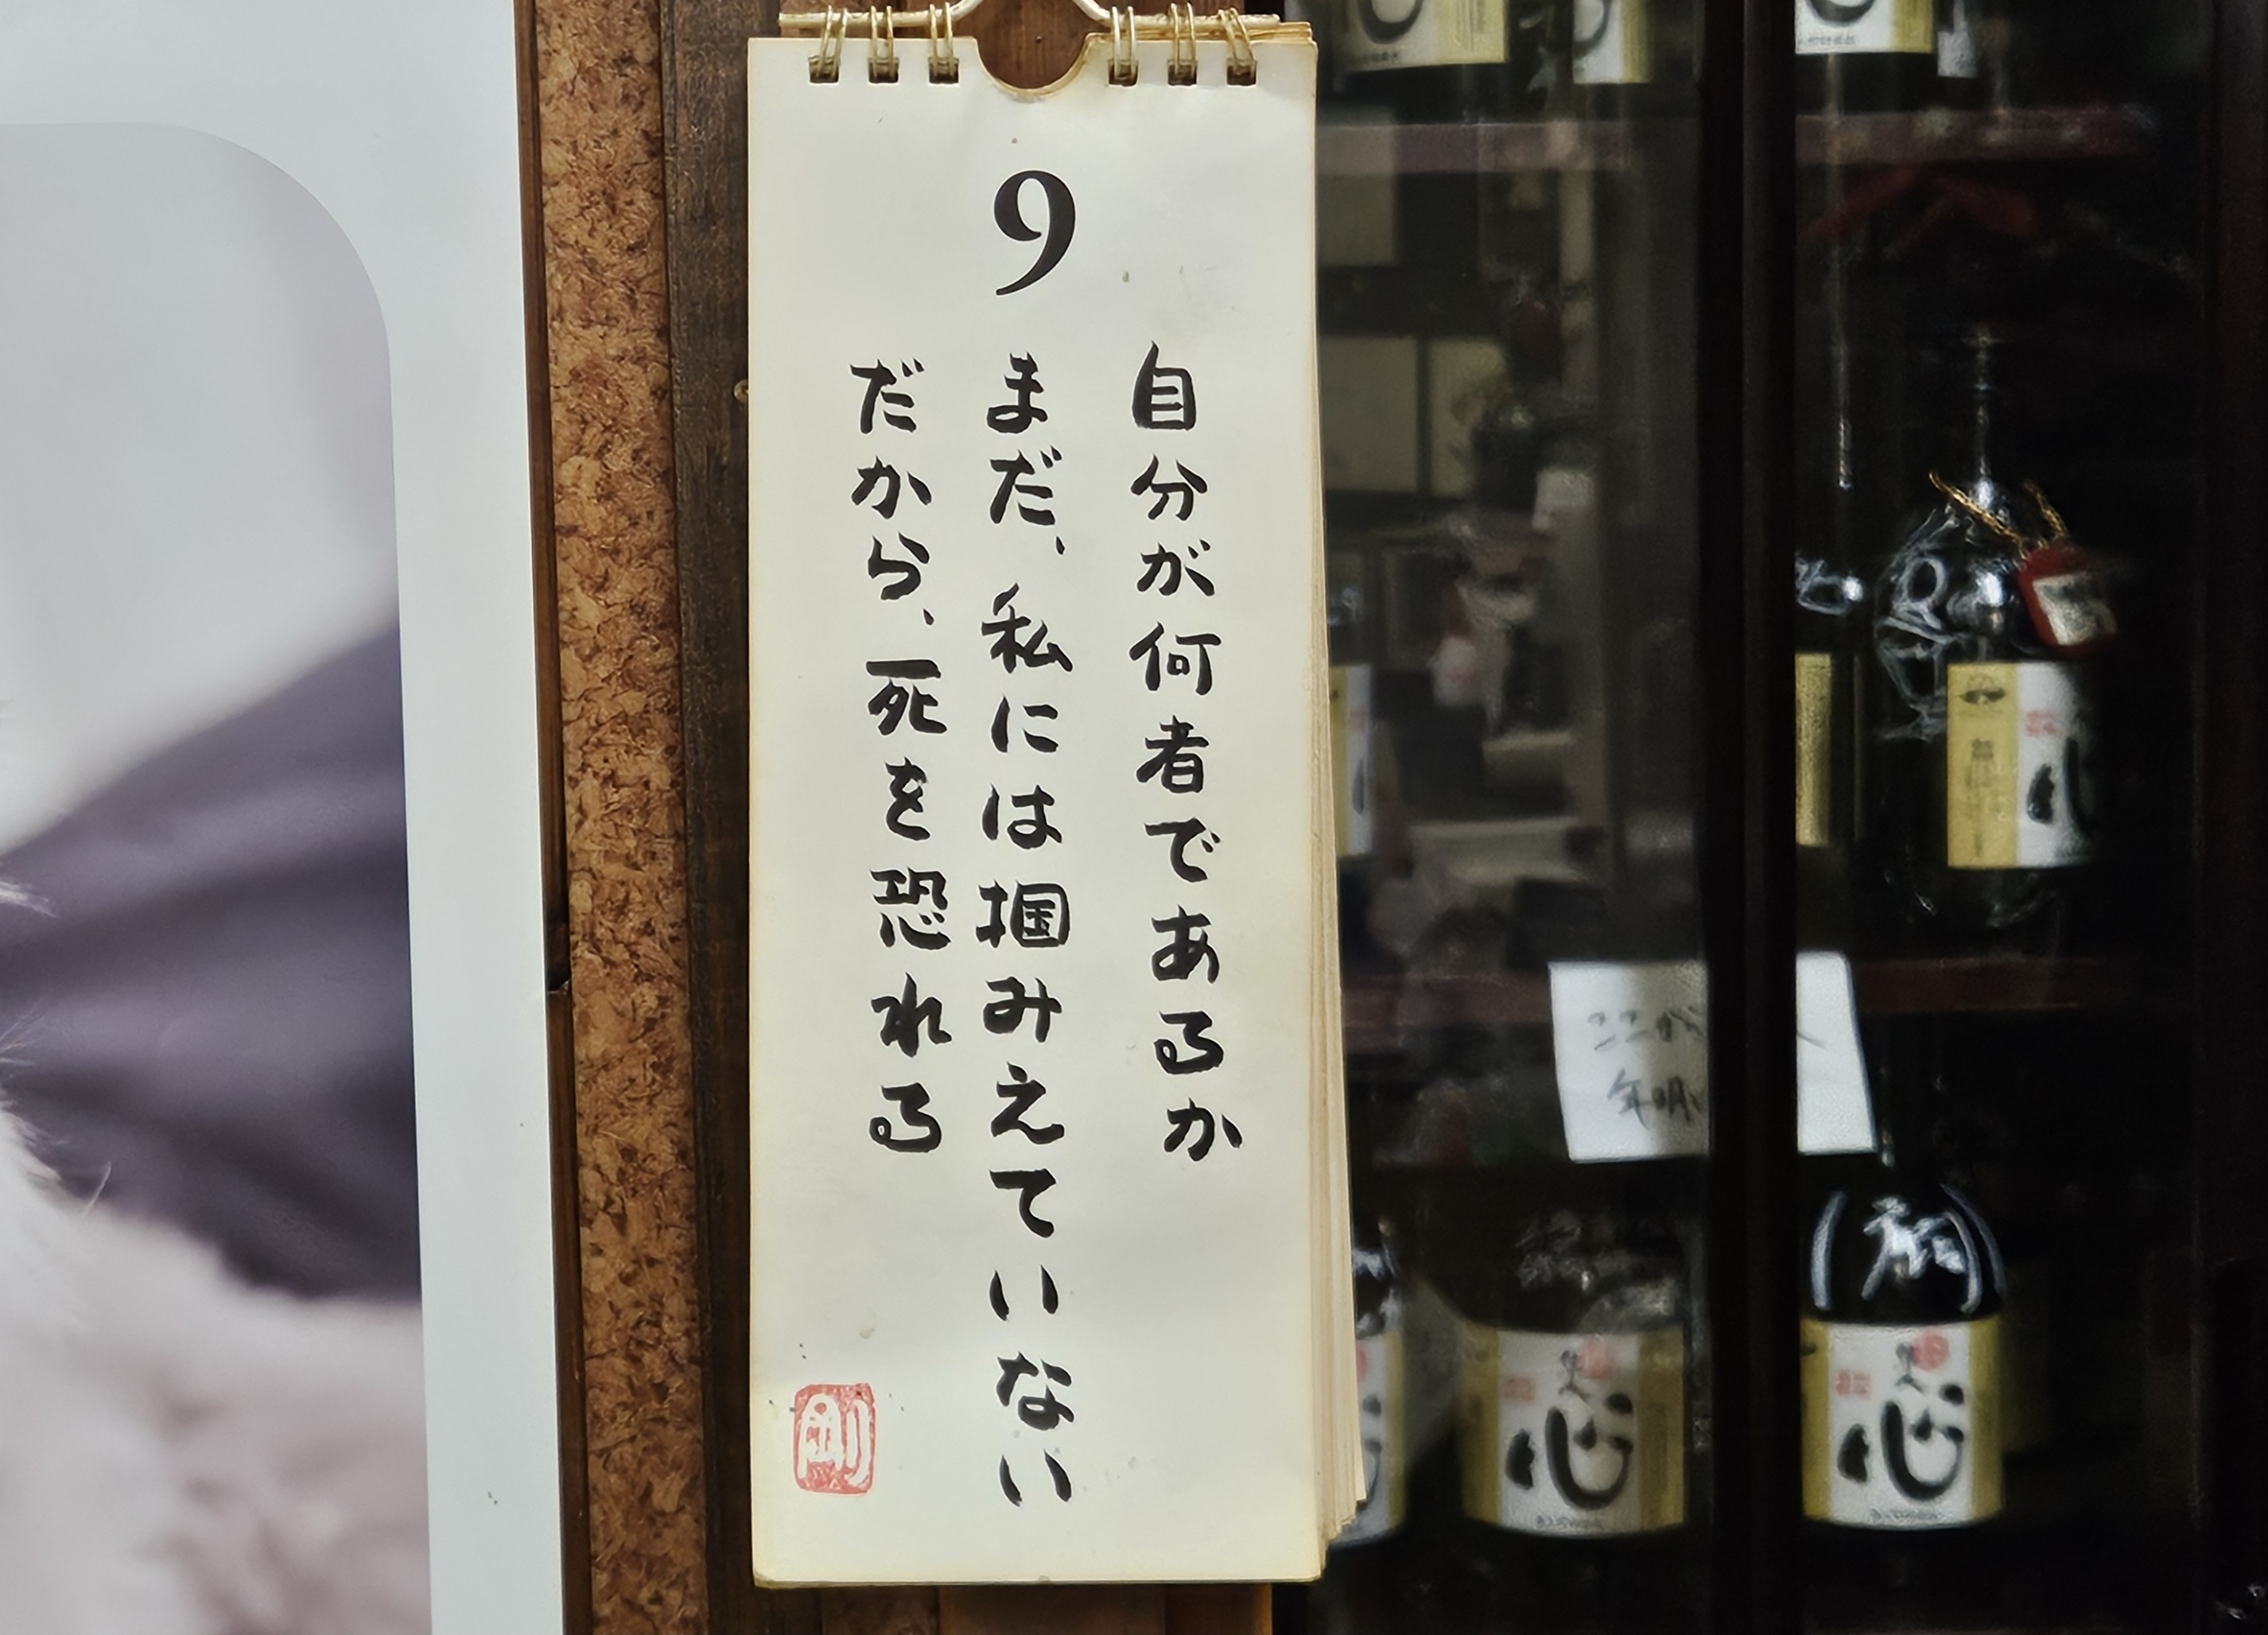 9
自分が何者であるか
まだ、私には掴みえていない
だから、死を恐れる
剛
ここから
年明
心
心